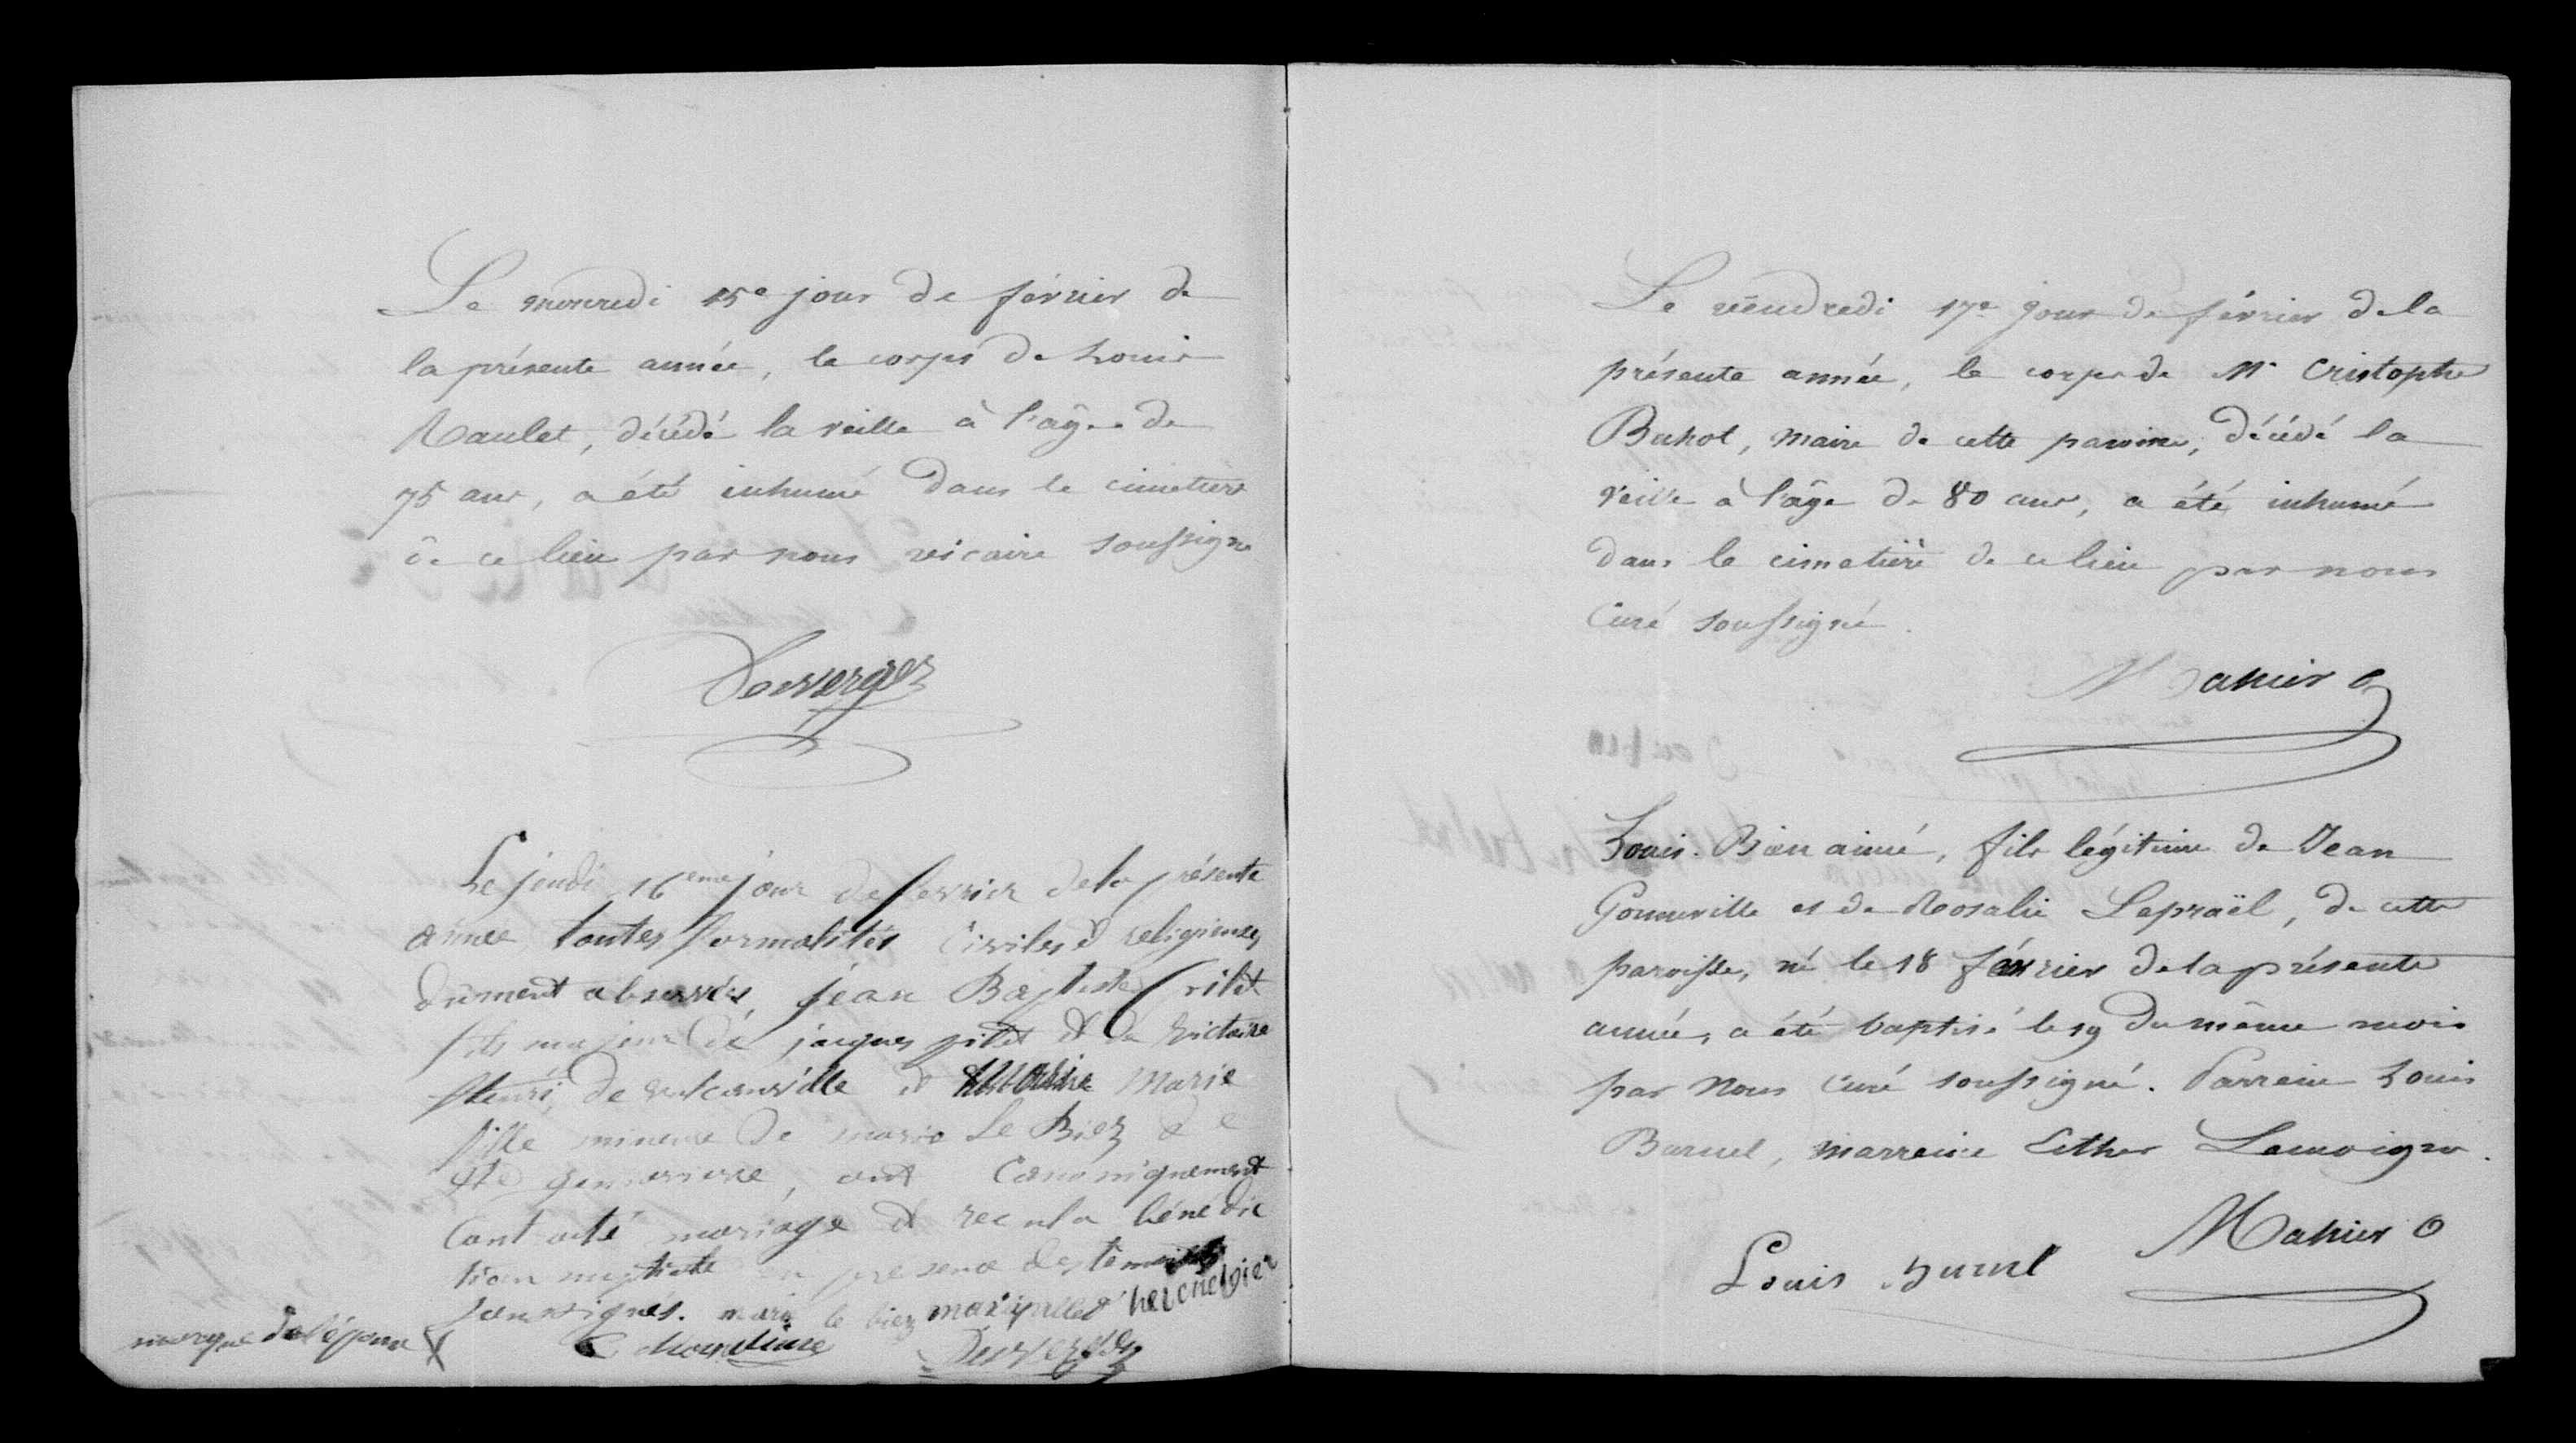 Le mercredi 15e jour de février de
la présente année, le corps de Louis
Raulet, décédé la veille à l'âge de
75 ans, a été inhumé dans le cimetière
de ce lieu par nous vicaire soussigné
Desverges
Le jeudi 16eme jour de fevrier de la présente
année toutes formalités civiles et religieuses
dûment observées, jean Baptiste
fils majeur de jacques et de Victoire
fleuri, de et Marie
fille mineure de marie Le Biez de
Ste genevieve, ont canoniquement
contracté mariage et recu la bénédic
tion nuptiale en presence des temoins
soussignés. marie le biez
marque de l'épouse X Desverges
Le vendredi 17e jour de février de la
présente année, le corps de Mr Cristophe
Buhot, maire de cette paroisse, décédé la
veille à l'âge de 80 ans, a été inhumé
dans le cimetière de ce lieu par nous
Curé soussigné.
Mahieu
Louis-Bien aimé, fils légitime de Jean
Gonneville et de Rosalie Lepraël, de cette
paroisse, né le 18 février de la présente
année, a été baptisé le 19 du même mois
par nous Curé soussigné. Parrain Louis
Burnel, marraine Esther Lemoigne.
Louis burnel Mahieu